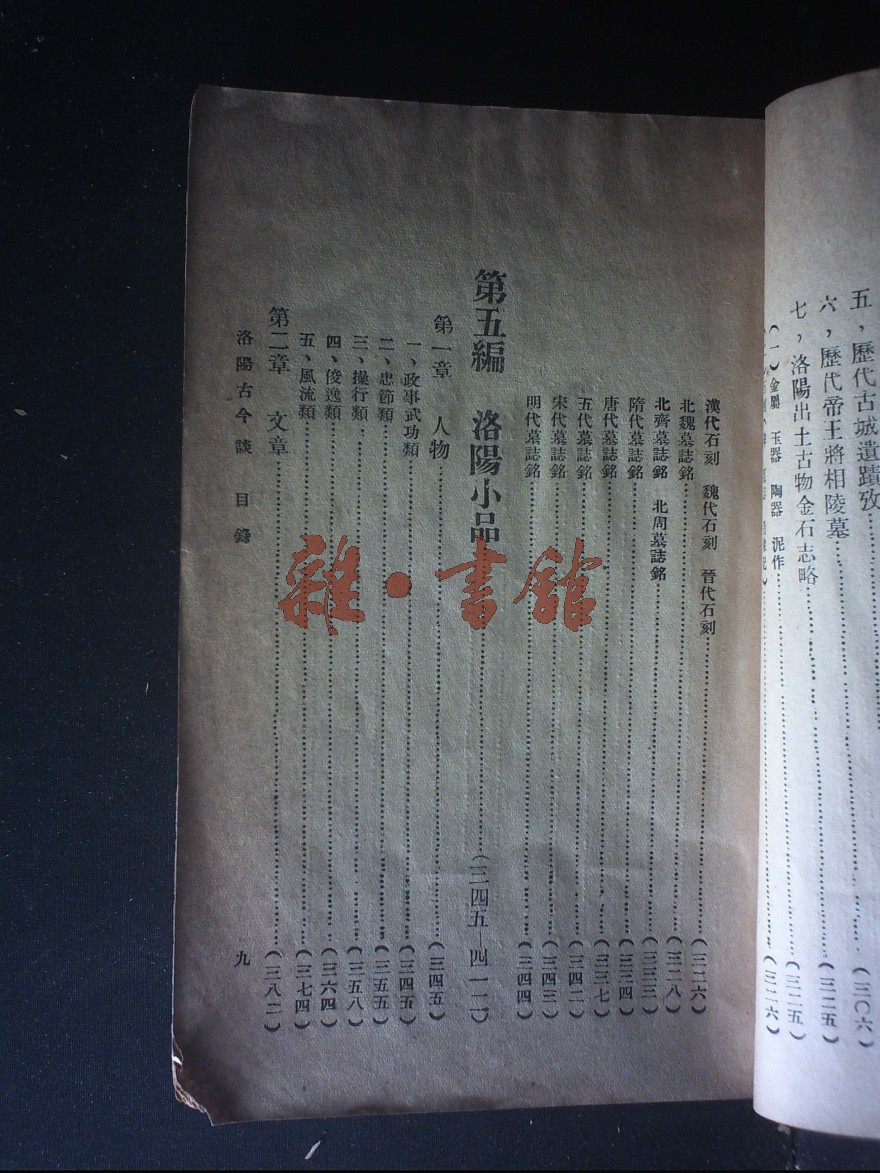 五，歷代古城遺蹟攷……(三〇六)
六，歷代帝王將相陵墓……(三二五)
七，洛陽出土古物金石志略……(三二五)
(一)金屬 玉器 陶器 泥作……(三二六)
漢代石刻 魏代石刻 晉代石刻……(三二六)
北魏墓誌銘……(三二八)
北齊墓誌銘 北周墓誌銘……(三三三)
隋代墓誌銘……(三三四)
唐代墓誌銘……(三三七)
五代墓誌銘……(三四二)
宋代墓誌銘……(三四三)
明代墓誌銘……(三四四)
第五編 洛陽小品……(三四五—四一二)
第一章 人物……(三四五)
一、政事武功類……(三四五)
二、忠節類……(三五五)
三、操行類……(三五八)
四、俊逸類……(三六四)
五、風流類……(三七四)
第二章 文章……(三八二)
洛陽古今談 目錄 九
雜·書館